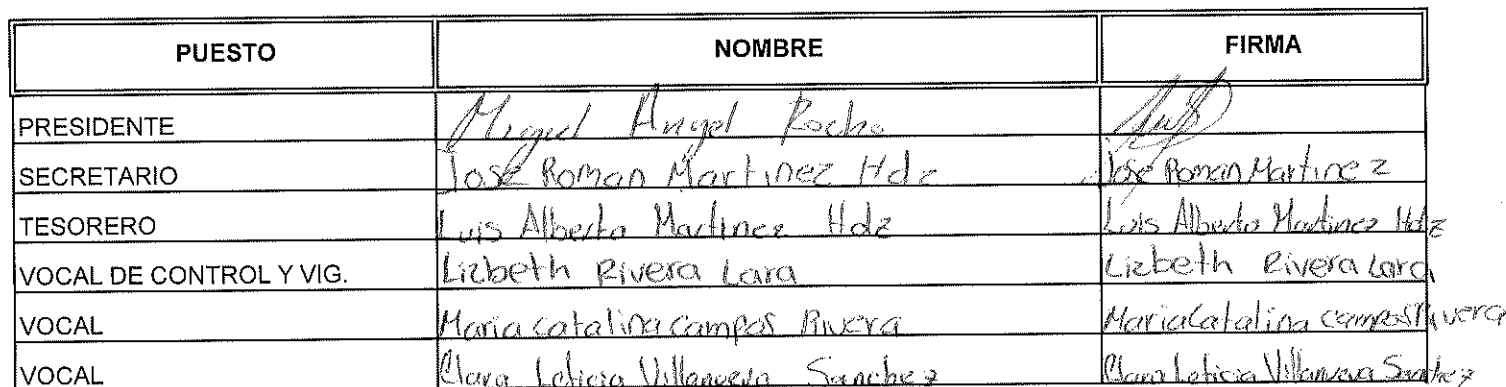 PUESTO NOMBRE FIRMA
PRESIDENTE Miguel Angel Rocha
SECRETARIO José Roman Martinez Hdz José Roman Martinez
TESORERO Luis Alberto Martinez Hdz Luis Alberto Martinez Hdz
VOCAL DE CONTROL Y VIG. Lizbeth Rivera Lara Lizbeth Rivera Lara
VOCAL Maria Catalina Campos Rivera Maria Catalina Campos Rivera
VOCAL Clara Leticia Villanueva Sanchez Clara Leticia Villanueva Sanchez